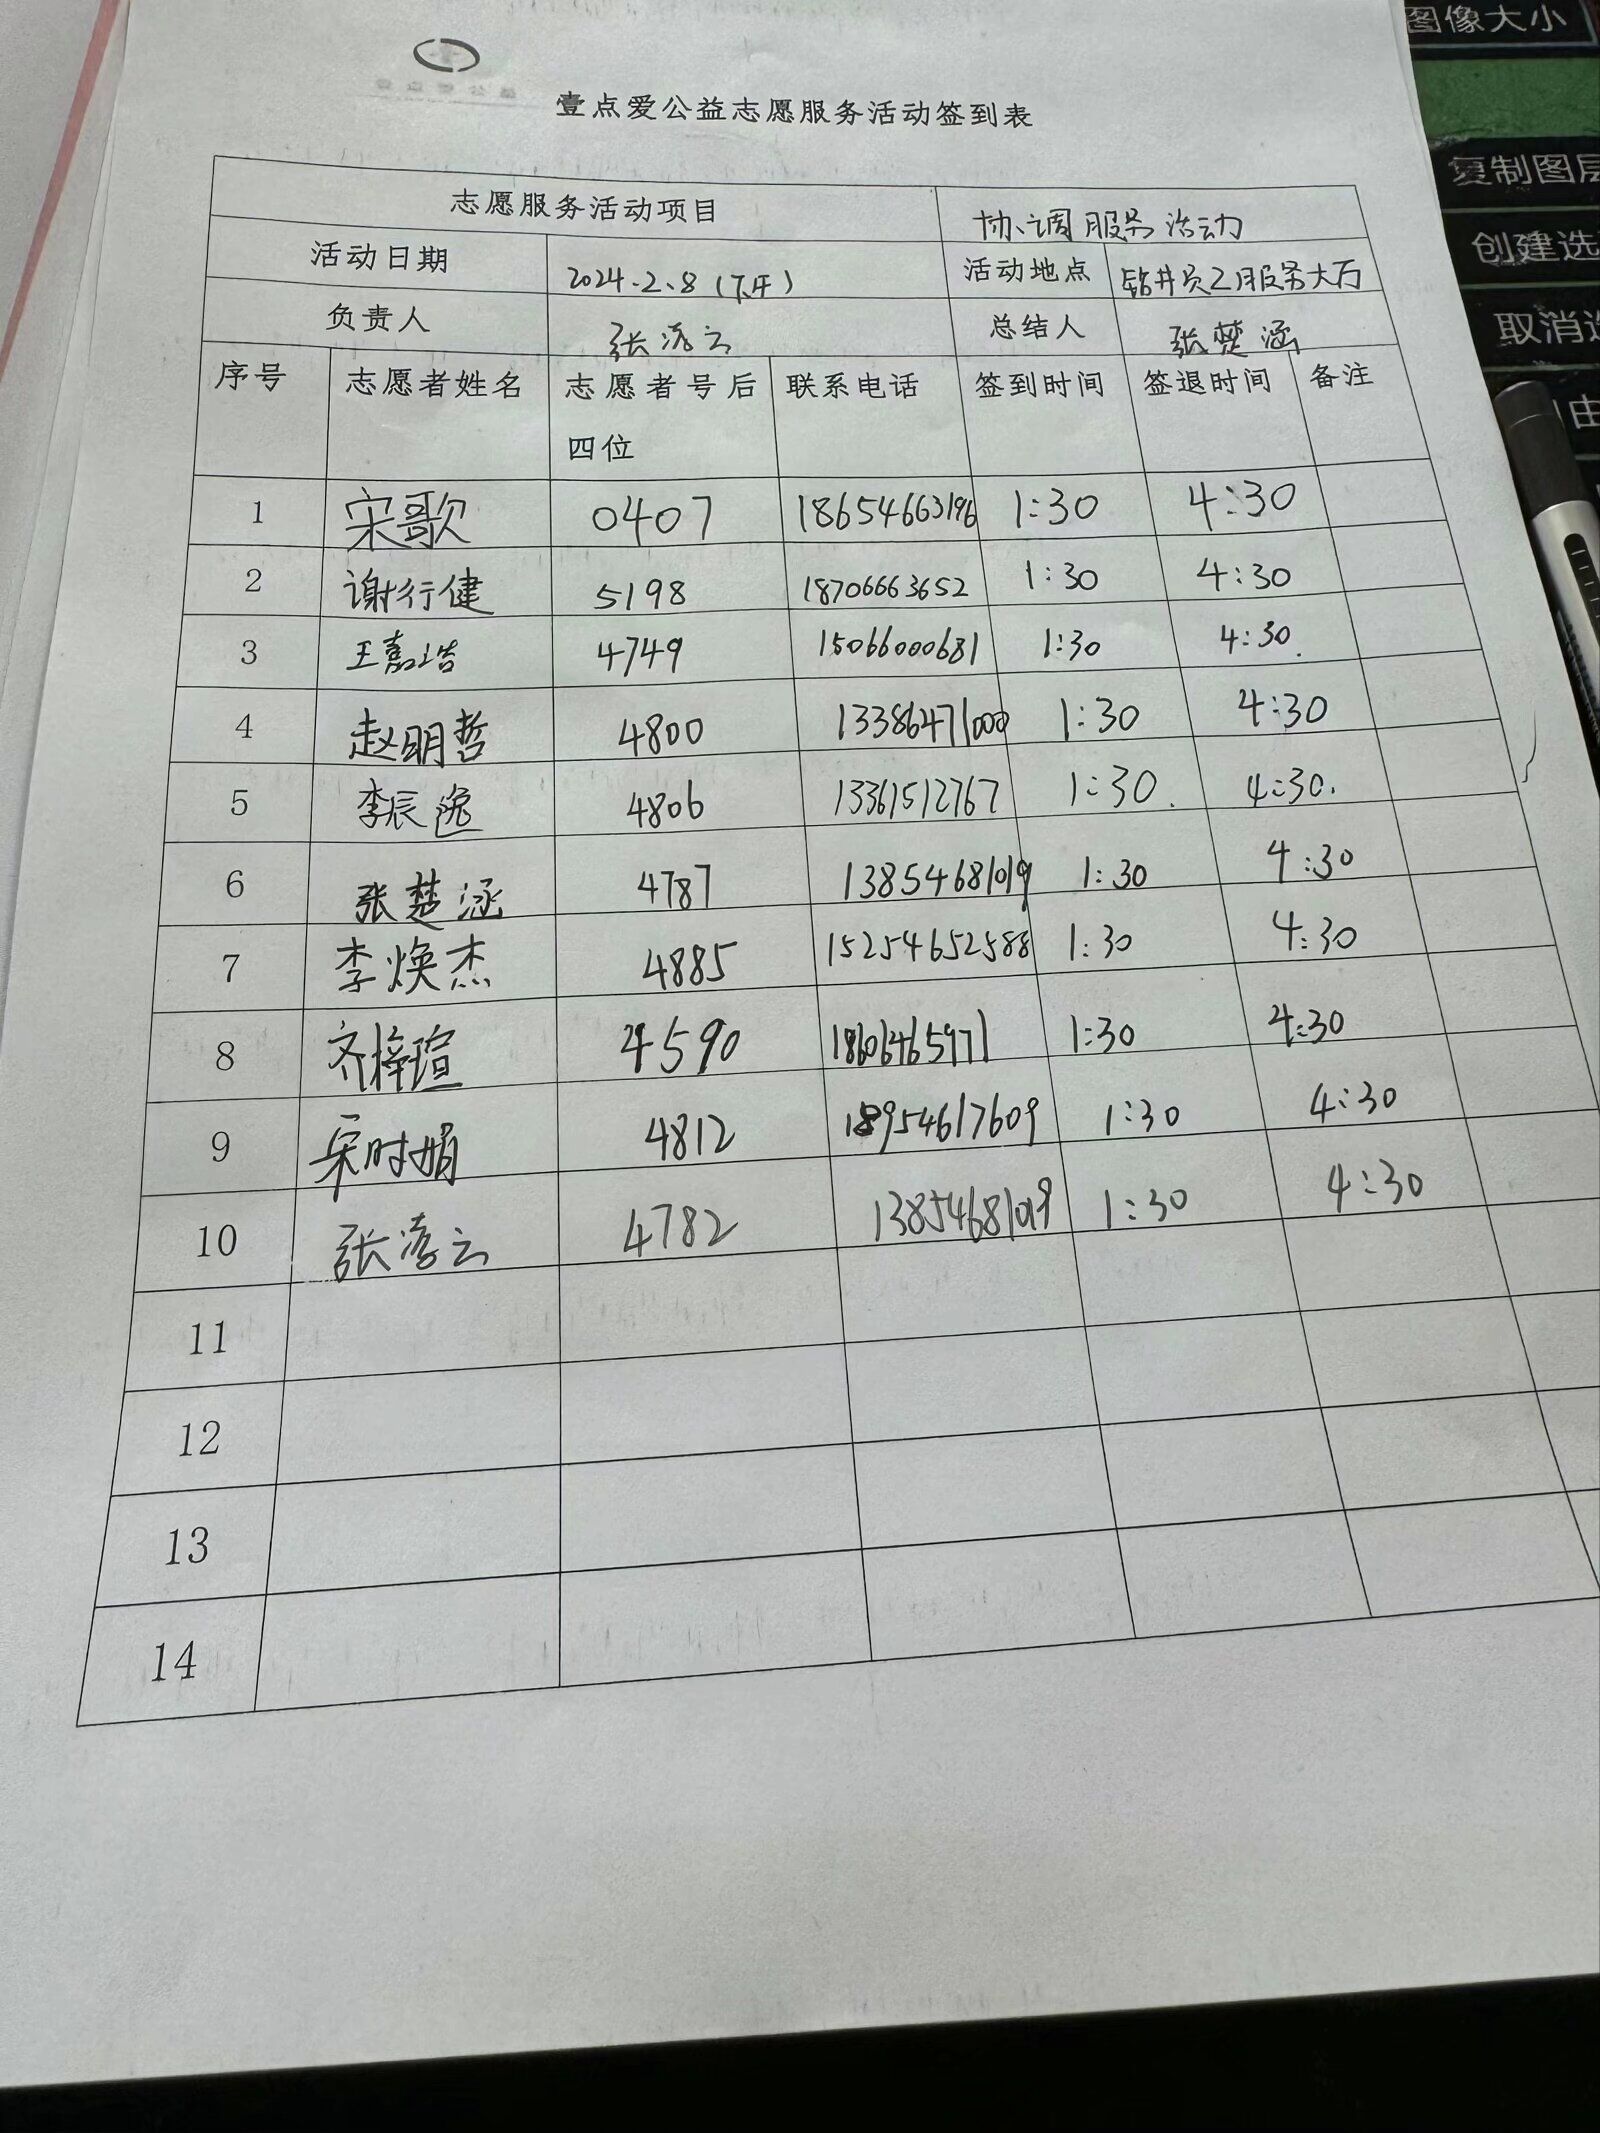 壹点爱公益志愿服务活动签到表
志愿服务活动项目 协调服务活动
活动日期 2024.2.8(下午) 活动地点 钻井员工服务大厅
负责人 张凌云 总结人 张楚涵
序号 志愿者姓名 志愿者号后四位 联系电话 签到时间 签退时间 备注
1 宋歌 0407 18654663196 1:30 4:30
2 谢行健 5198 18706663652 1:30 4:30
3 王嘉浩 4749 15066000681 1:30 4:30.
4 赵明哲 4800 13386471000 1:30 4:30
5 李辰逸 4806 13361512767 1:30. 4:30.
6 张楚涵 4787 13854681019 1:30 4:30
7 李焕杰 4885 15254652588 1:30 4:30
8 齐梓瑄 4590 18606465971 1:30 4:30
9 宋时娟 4812 18954617609 1:30 4:30
10 张凌云 4782 13854681019 1:30 4:30
11
12
13
14
图像大小
复制图层
创建选
取消选
由